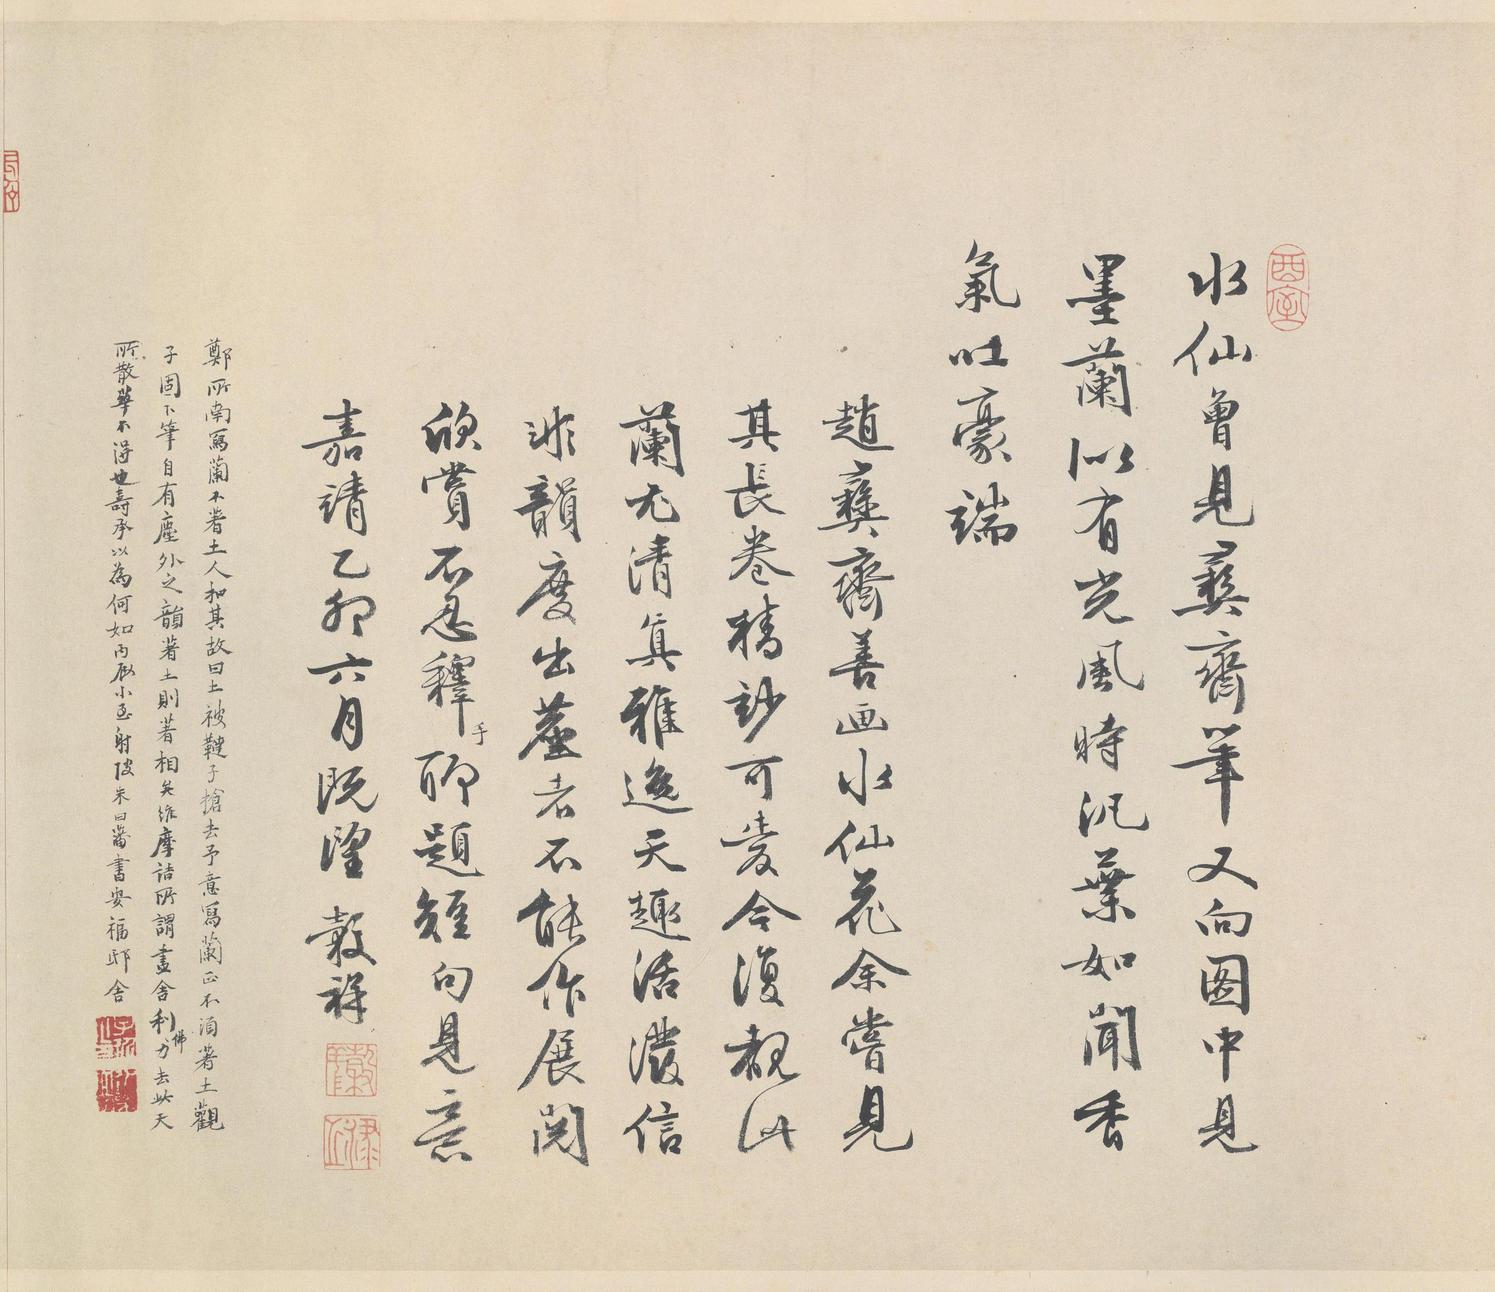 酉室
水仙曾見彝齋筆又向圖中見
墨蘭似有光風時汎葉如聞香
氣吐豪端
趙彝齋善画水仙花余嘗見
其長卷精妙可愛今復覩此
蘭尤清真雅逸天趣活潑信
非韻度出塵者不能作展閱
欣賞不忍釋手聊題短句見意
嘉靖乙卯六月既望 榖祥
鄭所南寫蘭不着土人和其故曰土被韃子搶去予意寫蘭正不須著土觀
子固下筆自有塵外之韻著土則著相矣維摩詰所謂盡舍利佛力去此天
所散華不得也壽承以為何如丙辰小至射陂朱曰藩書安福邸舍